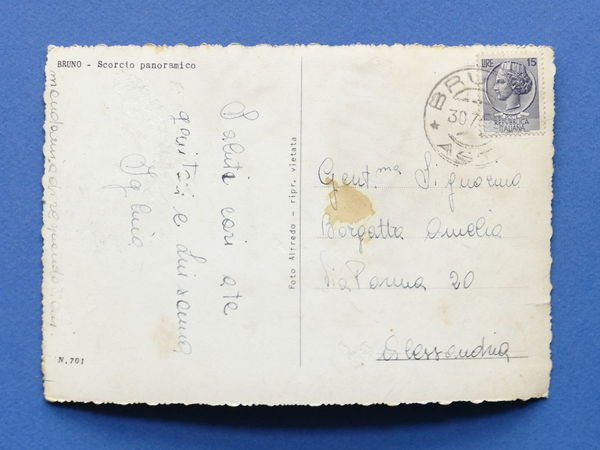 BRUNO - Scorcio panoramico
Saluti cari a te
genitori e
N. 701
Foto Alfredo - ripr. vietata
LIRE 15
REPVBBLICA
ITALIANA
BRUNO
30.7
AST
Gent.ma Signorina
Borgatta Amelia
Via Parma 20
Alessandria